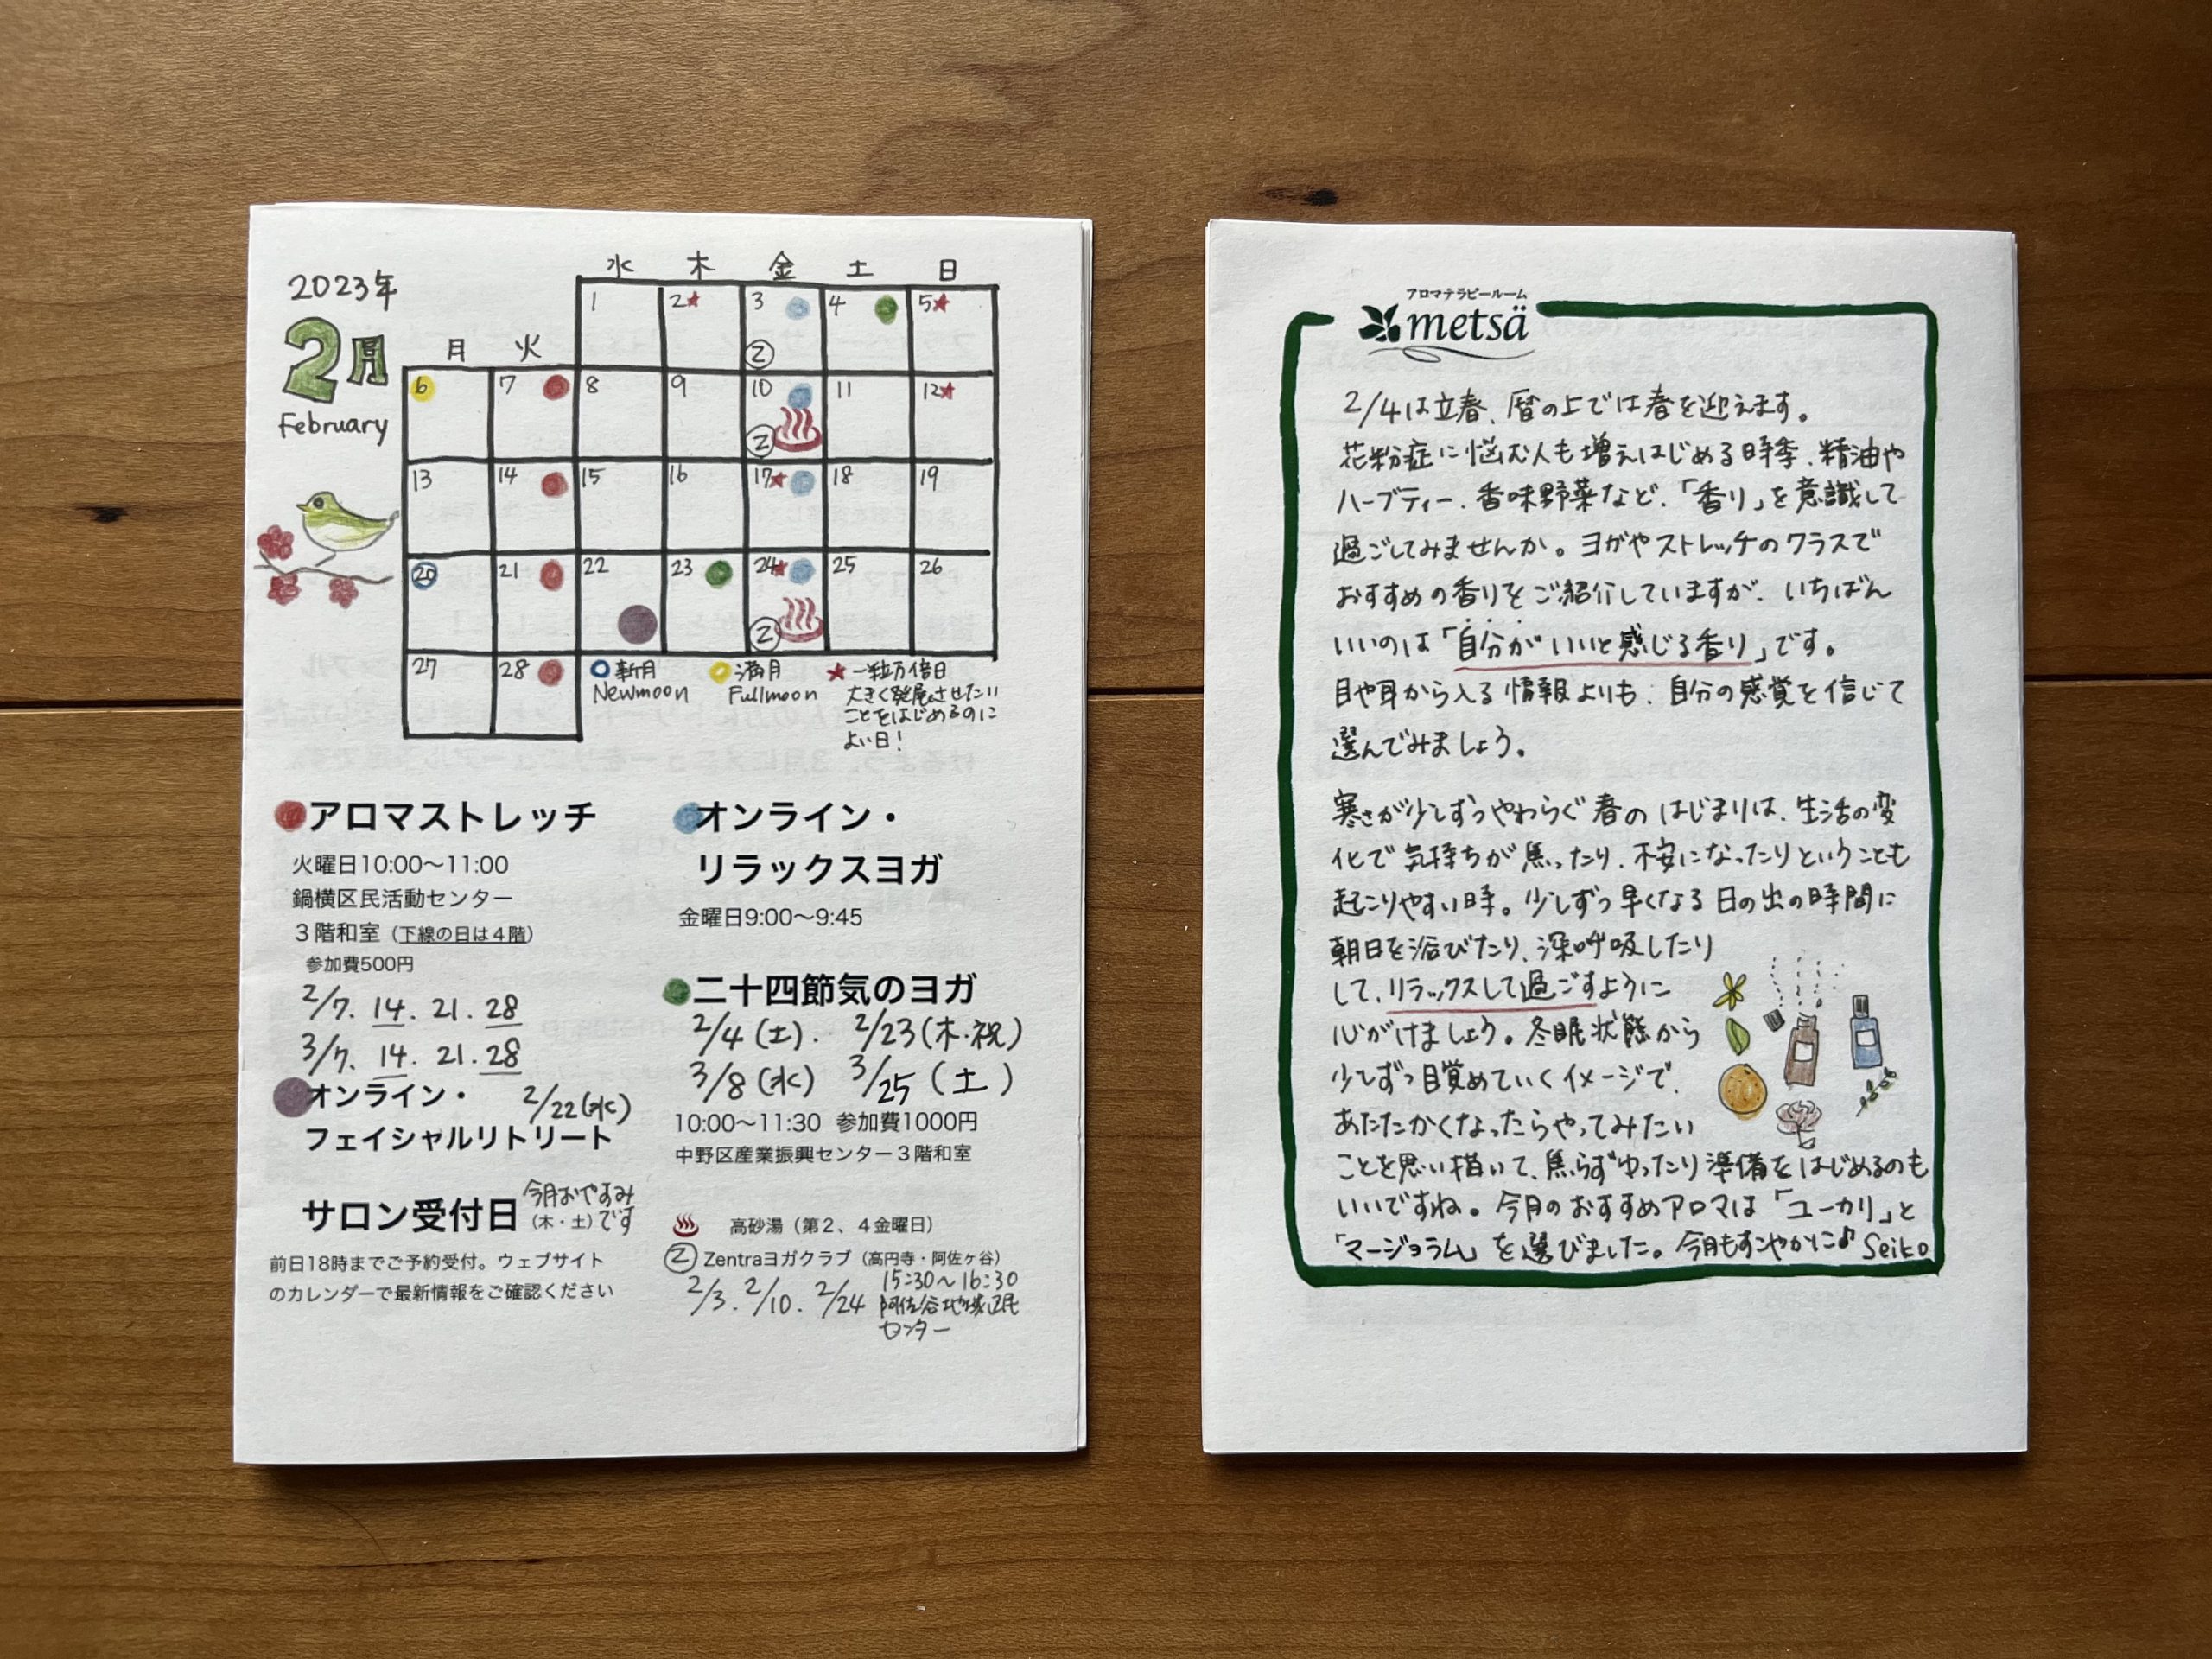 2023年
2月
February
水 木 金 土 日
月 火
1 2 3 4 5
Z
6 7 8 9 10 11 12
Z
13 14 15 16 17 18 19
20 21 22 23 24 25 26
Z
27 28
新月
Newmoon
満月
Fullmoon
一粒万倍日
大きく発展させたい
ことをはじめるのに
よい日!
アロマストレッチ
火曜日10:00〜11:00
鍋横区民活動センター
3階和室（下線の日は4階）
参加費500円
2/7. 14. 21. 28
3/7. 14. 21. 28
オンライン・
フェイシャルリトリート
2/22(水)
サロン受付日
（木・土）
今月おやすみ
です
前日18時までご予約受付。ウェブサイト
のカレンダーで最新情報をご確認ください
オンライン・
リラックスヨガ
金曜日9:00〜9:45
二十四節気のヨガ
2/4(土). 2/23(木・祝)
3/8(水) 3/25(土)
10:00〜11:30 参加費1000円
中野区産業振興センター3階和室
高砂湯（第2、4金曜日）
Z Zentraヨガクラブ（高円寺・阿佐ヶ谷）
2/3. 2/10. 2/24
15:30〜16:30
阿佐谷地域区民
センター
アロマテラピールーム
metsä
2/4は立春、暦の上では春を迎えます。
花粉症に悩む人も増えはじめる時季、精油や
ハーブティー、香味野菜など、「香り」を意識して
過ごしてみませんか。ヨガやストレッチのクラスで
おすすめの香りをご紹介していますが、いちばん
いいのは「自分がいいと感じる香り」です。
目や耳から入る情報よりも、自分の感覚を信じて
選んでみましょう。
寒さが少しずつやわらぐ春のはじまりは、生活の変
化で気持ちが焦ったり、不安になったりということも
起こりやすい時。少しずつ早くなる日の出の時間に
朝日を浴びたり、深呼吸したり
して、リラックスして過ごすように
心がけましょう。冬眠状態から
少しずつ目覚めていくイメージで、
あたたかくなったらやってみたい
ことを思い描いて、焦らずゆったり準備をはじめるのも
いいですね。今月のおすすめアロマは「ユーカリ」と
「マージョラム」を選びました。今月もすこやかに♪ Seiko